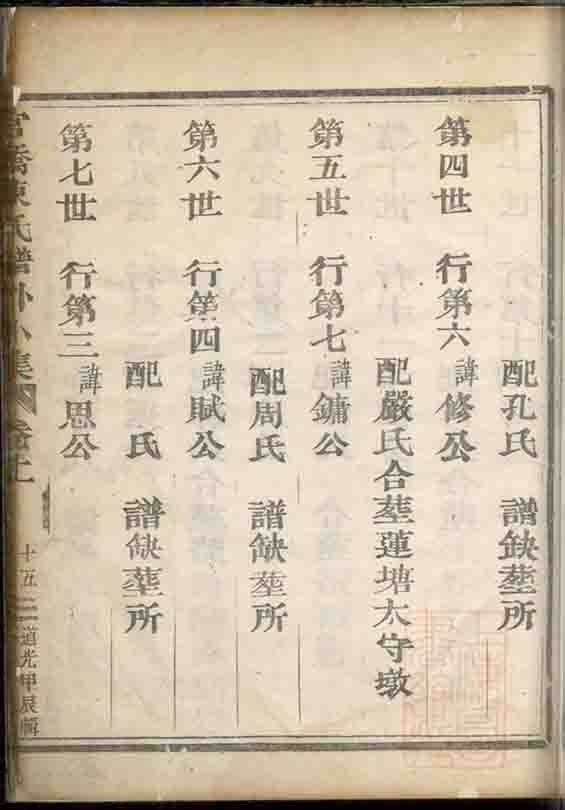 配孔氏　譜缺塟所
第四世　行第六　諱修公
配嚴氏合塟蓮塘太守墩
第五世　行第七　諱鏞公
配周氏　譜缺塟所
第六世　行第四　諱賦公
配　氏　譜缺塟所
第七世　行第三　諱思公
橋陳氏譜外小集　卷上　十五　道光甲辰輯